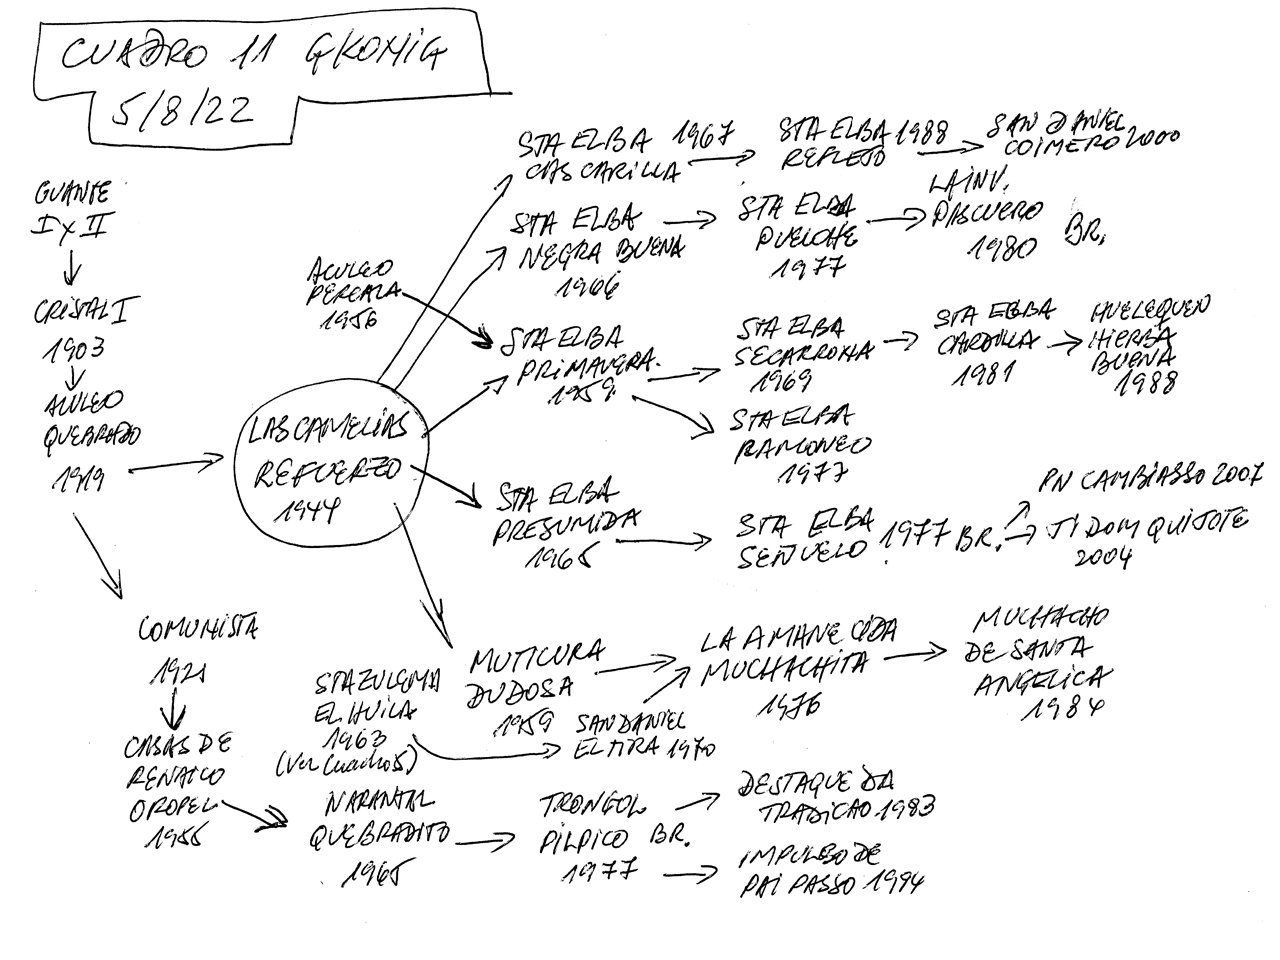 CUADRO 11 GKONIG
5/8/22
GUANTE
I Y II
CRISTAL I
1903
ACULEO
QUEBRADO
1919
COMUNISTA
1921
CASAS DE
RENAICO
OROPEL
1955
LAS CAMELIAS
REFUERZO
1944
ACULEO
PERCALA
1956
STA ELBA 1967
CASCARILLA
STA ELBA 1988
REFLEJO
SAN DANIEL
COIMERO 2000
STA ELBA
NEGRA BUENA
1966
STA ELBA
PUELCHE
1977
LA INV.
PASCUERO
1980
BR.
STA ELBA
PRIMAVERA.
1959
STA ELBA
SECARRONA
1969
STA ELBA
CARDILLA
1981
HUELEQUEN
HIERBA
BUENA
1988
STA ELBA
RAMONEO
1977
STA ELBA
PRESUMIDA
1965
STA ELBA
SEÑUELO 1977 BR.
PN CAMBIASSO 2007
JI DOM QUIJOTE
2004
MUTICURA
DUDOSA
1959
LA AMANECIDA
MUCHACHITA
1976
MUCHACHO
DE SANTA
ANGELICA
1984
STA ZULEMA
EL HUILA
1963
(Ver Cuadro 5)
SAN DANIEL
ELTIRA 1970
NARANJAL
QUEBRADITO
1965
TRONGOL
PILPICO BR.
1977
DESTAQUE DA
TRADICAO 1983
IMPULSO DE
PAI PASSO 1994